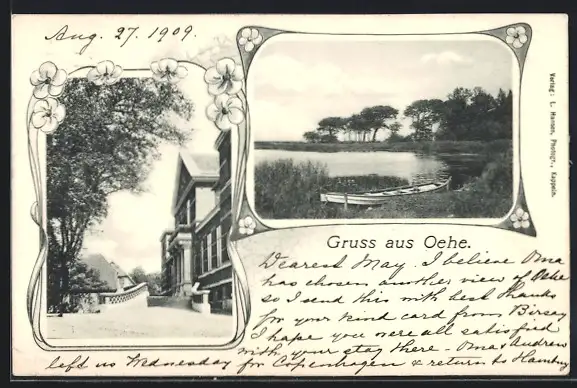 Aug. 27. 1909.
Verlag: L. Hansen, Photogr., Kappeln.
Gruss aus Oehe.
Dearest May. I believe Oma
has chosen another view of Oehe
so I send this with best thanks
for your kind card from Birsay
I hope you were all satisfied
with your stay there - Oma & Andrew
left us Wednesday for Copenhagen & return to Hamburg